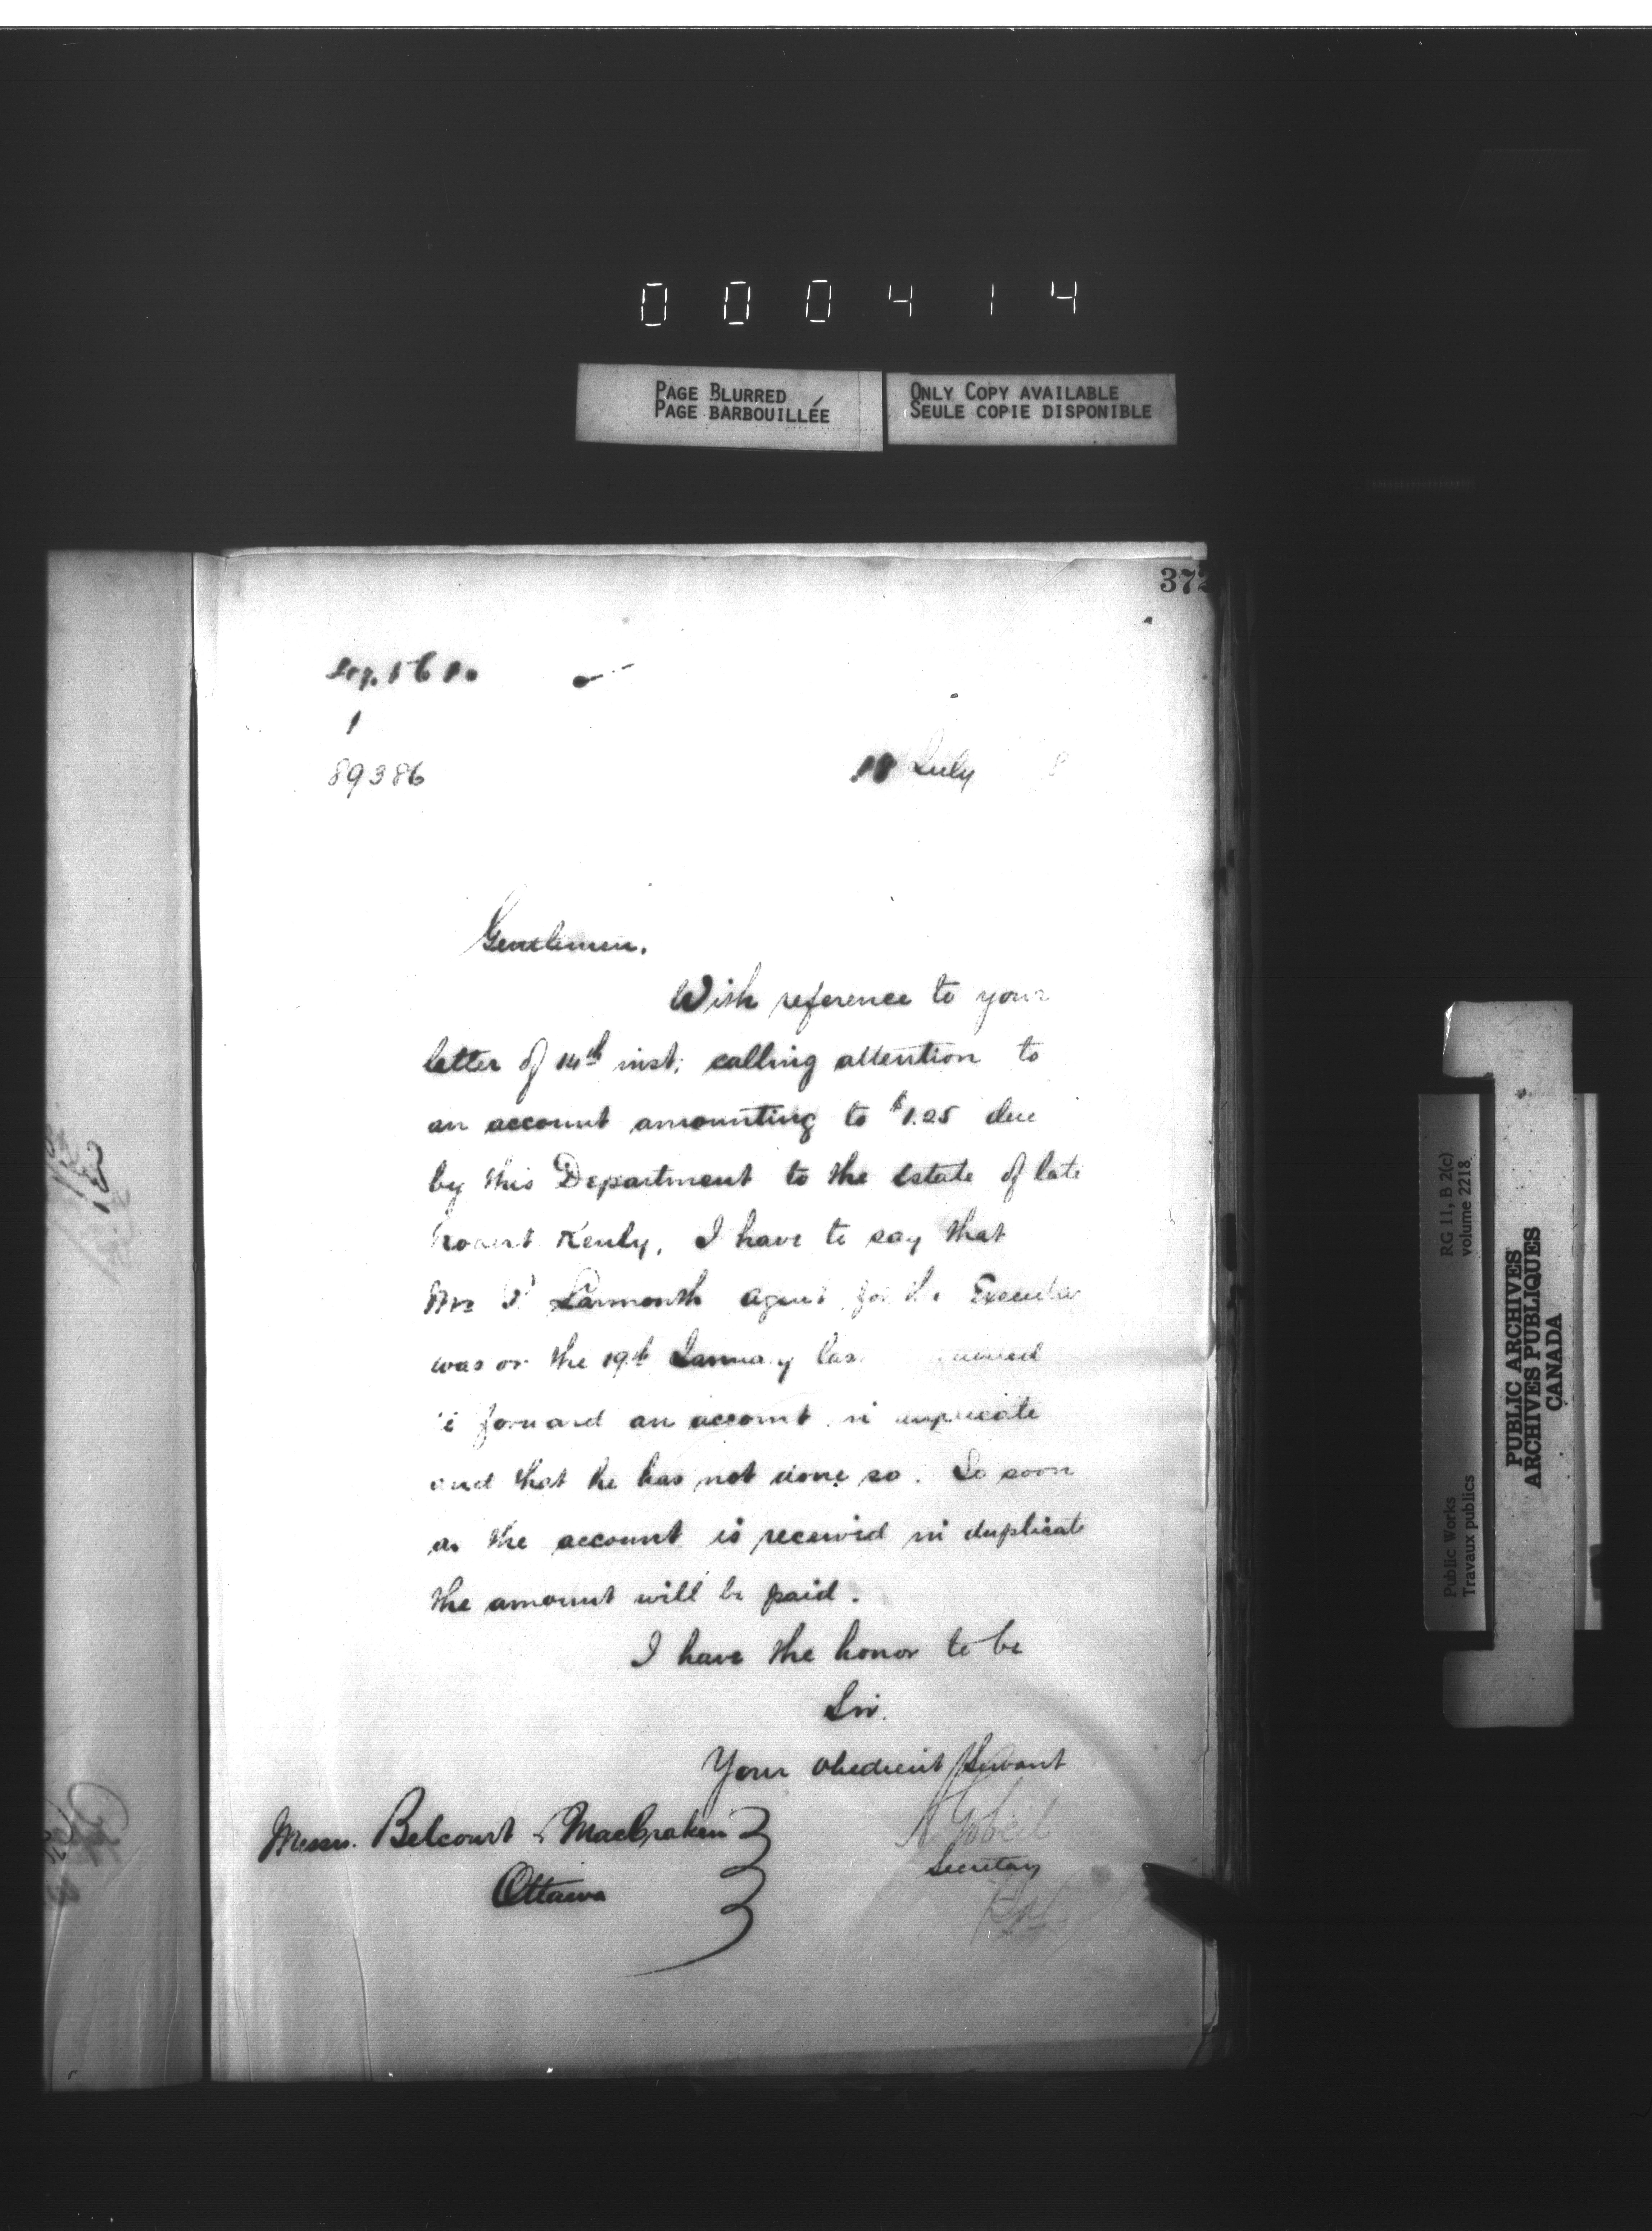 000414
PAGE BLURRED
PAGE BARBOUILLÉE
ONLY COPY AVAILABLE
SEULE COPIE DISPONIBLE
372
1
89386
18 July
Gentlemen.
With reference to your
letter of 14th inst; calling attention to
an account amounting to $1.25 due
by this Department to the Estate of late
Robert Kenly, I have to say that
Larmonth agent for the Executor
was on the 19th January last
forward an account in duplicate
and that he has not done so. So soon
as the account is received in duplicate
the amount will be paid.
I have the honor to be
Sir.
Your obedient servant
A Gobeil
Secretary
Messrs. Belcourt & MacCraken
Ottawa
RG 11, B 2(c)
volume 2218
Public Works
Travaux publics
PUBLIC ARCHIVES
ARCHIVES PUBLIQUES
CANADA